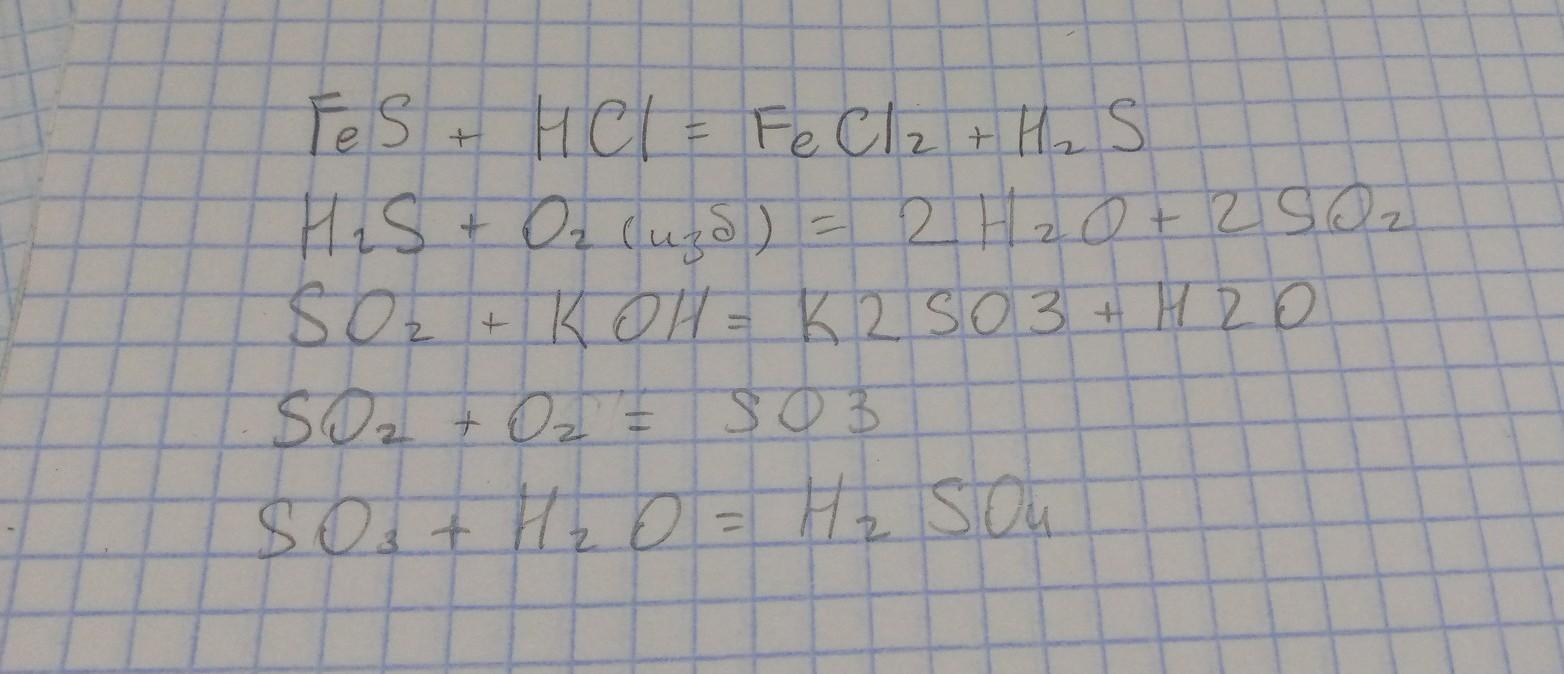 FeS + HCl = FeCl₂ + H₂S
H₂S + O₂ (изб) = 2H₂O + 2SO₂
SO₂ + KOH = K2SO3 + H2O
SO₂ + O₂ = SO3
SO₃ + H₂O = H₂SO₄